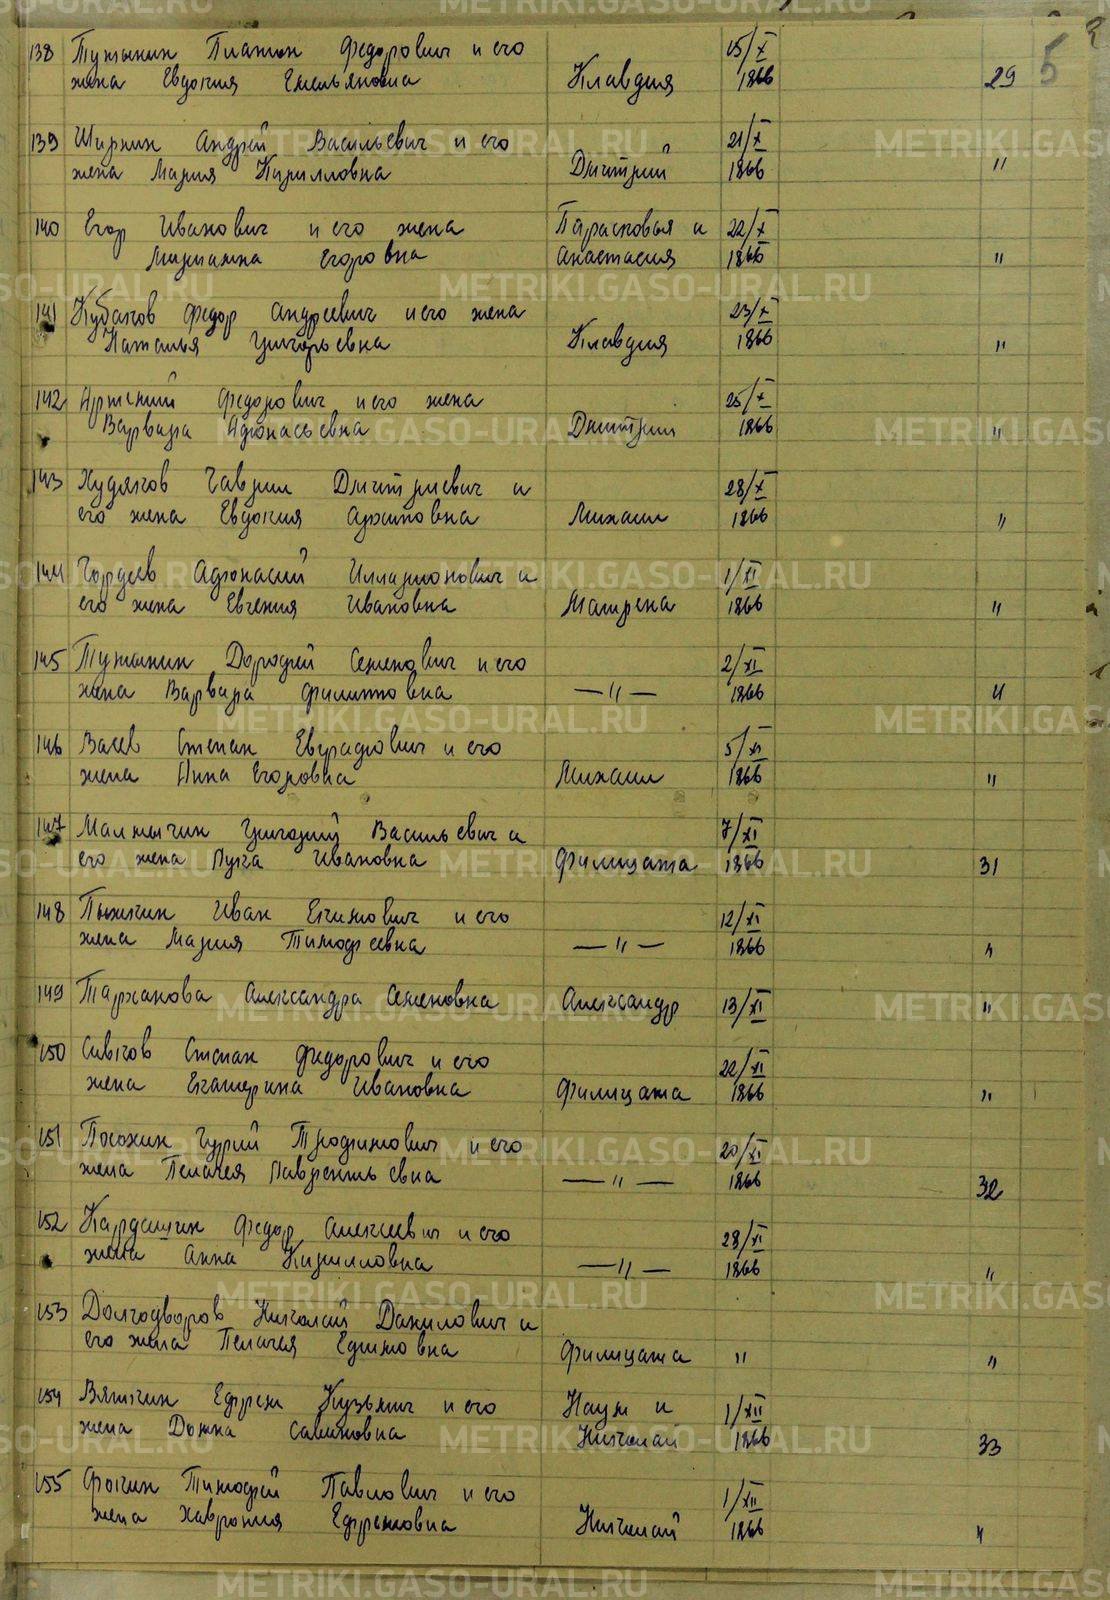 5
138 Тутынин Платон Федорович и его 15/X
жена Евдокия Емельяновна Клавдия 1866 29
139 Ширкин Андрей Васильевич и его 21/X
жена Мария Кирилловна Дмитрий 1866 "
140 Егор Иванович и его жена Парасковья и 22/X
Марианна Егоровна Анастасия 1866 "
141 Кубаков Федор Андреевич и его жена 23/X
Наталья Григорьевна Клавдия 1866 "
142 Арсений Федорович и его жена 25/X
Варвара Афонасьевна Дмитрий 1866 "
143 Худяков Гаврил Дмитриевич и 28/X
его жена Евдокия Архиповна Михаил 1866 "
144 Гордеев Афонасий Илларионович и 1/XI
его жена Евгения Ивановна Матрена 1866 "
145 Дорофей Семенович и его 2/XI
жена Варвара Филипповна — " — 1866 "
146 Васев Степан Евграфович и его 5/XI
жена Анна Егоровна Михаил 1866 "
147 Малмыгин Григорий Васильевич и 7/XI
его жена Луча Ивановна Филицата 1866 31
148 Пыжкин Иван Екимович и его 12/XI
жена Мария Тимофеевна — " — 1866 "
149 Тарханова Александра Семеновна Александр 13/XI "
150 Сивков Степан Федорович и его 22/XI
жена Екатерина Ивановна Филицата 1866 "
151 Посохин Гурий Трофимович и его 20/XI
жена Пелагея Лаврентьевна — " — 1866 32
152 Кардашин Федор Алексеевич и его 28/XI
жена Анна Кирилловна — " — 1866 "
153 Долгодворов Николай Данилович и
его жена Пелагея Ефимовна Филицата " "
154 Вяткин Ефрем Кузьмич и его Наум и 1/XII
жена Домна Савиновна Николай 1866 33
155 Фокин Тимофей Павлович и его 1/XII
жена Хаврония Ефремовна Николай 1866 "
METRIKI.GASO-URAL.RU